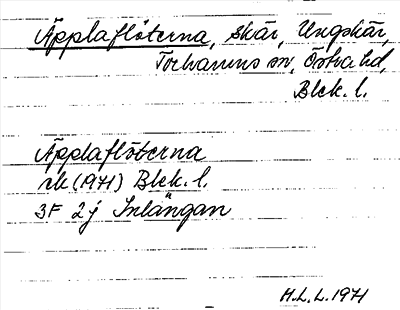 Äpplaflöterna, skär, Ungskär,
Torhamns sn, Östra hd,
Blek. l.
Äpplaflöterna
ek (1971) Blek. l.
3F 2j Inlängan
H.L.L. 1971